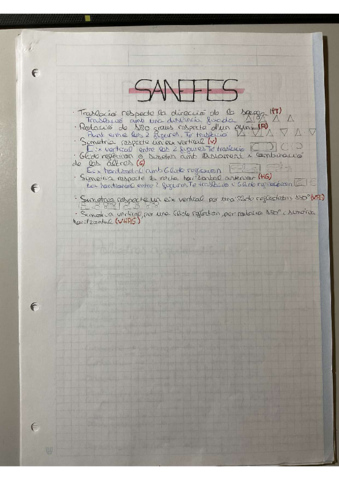 SANEFES
- Traslació respecte la direcció de la
Traslació amb una distància fixada
- Rotació de 180 graus respecte d'un punt (R)
Punt entre les 2 figures. Té traslació
- Simetria respecte un eix vertical (V)
E = vertical entre les 2 figures Té traslació
- Glide reflexion o simetria amb lliscament = combinació
de les altres (G)
E = horitzontal amb Glide reflexion
- Simetria respecte la recta horitzontal anterior (HG)
Eix horitzontal entre 2 figures Té traslació i Glide reflexion
- Simetria respecte un eix vertical per una Glide reflection 180º
- Simetria vertical per una Glide reflexion per rotació 180º, simetria
horitzontal (VHRG)